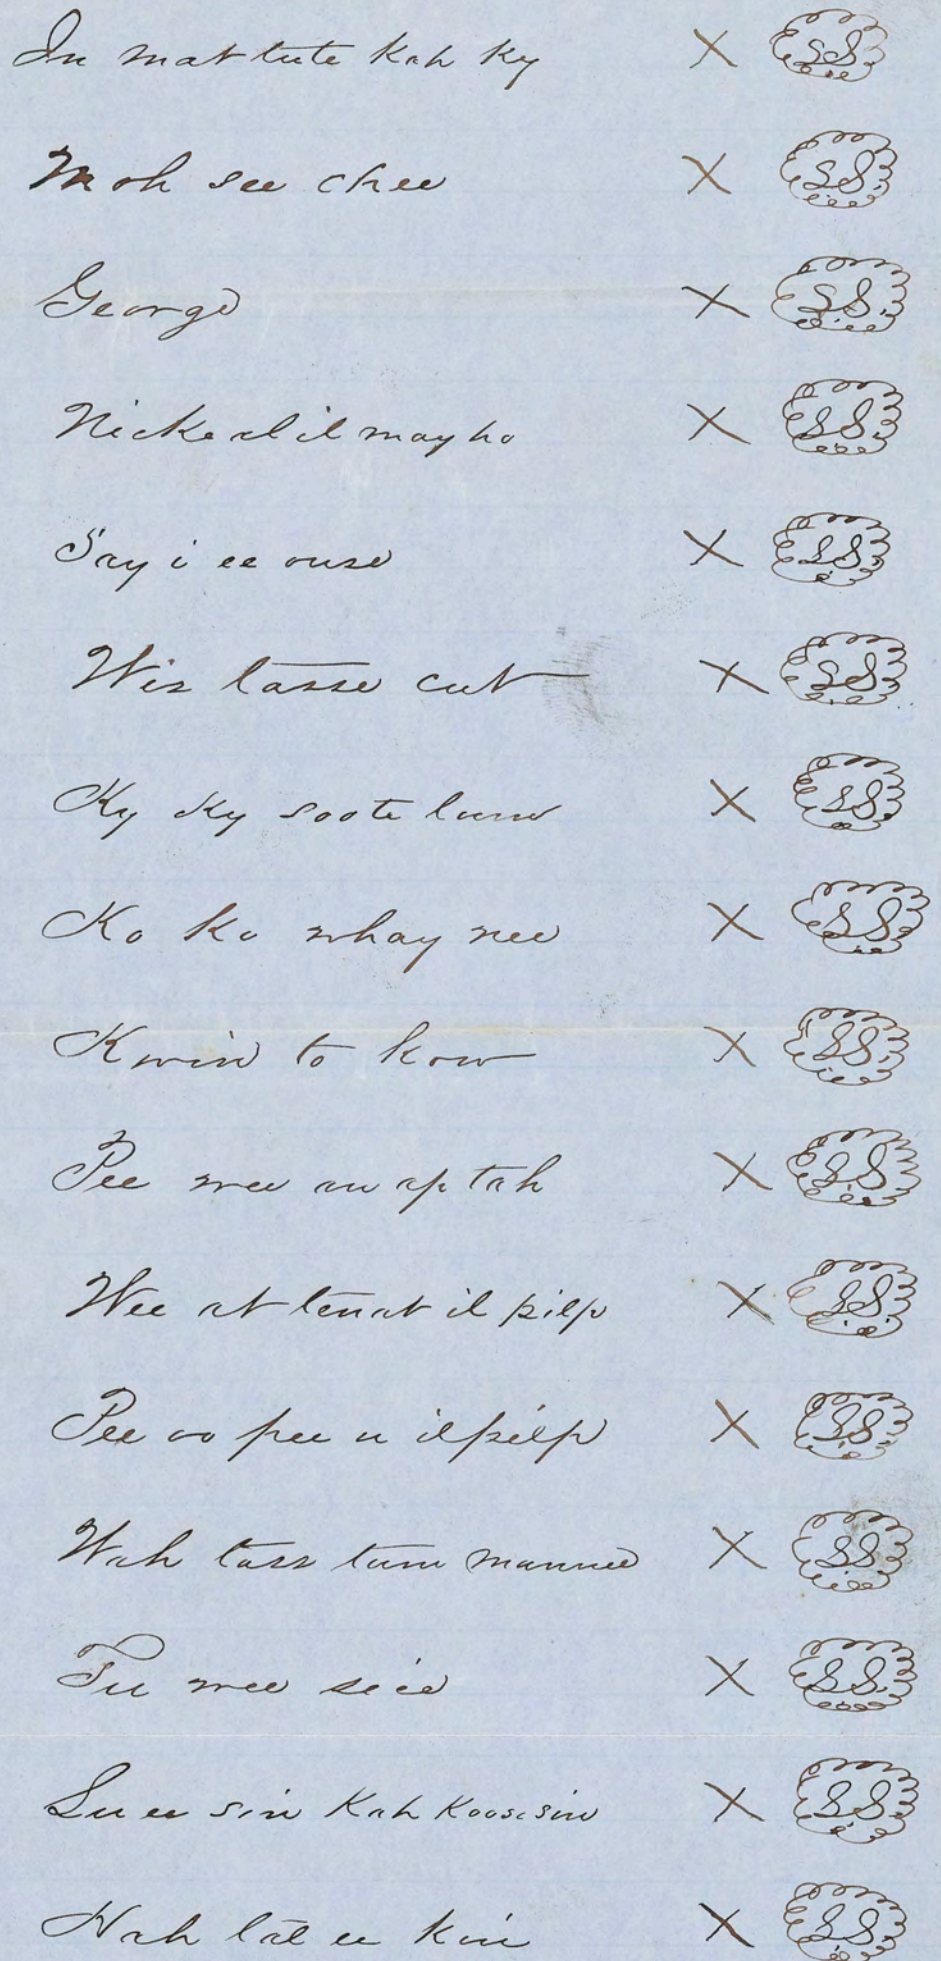 In mat tute Kah Ky X SS.
Moh see chee X SS.
George X SS.
Nicke el it may ho X SS.
Say i ee ouse X SS.
Wis tasse cut X SS.
Ky Ky soote lum X SS.
Ko ko whay nee X SS.
Kwin to kow X SS.
Pee wee au ap tah X SS.
Wee at tenat il pilp X SS.
Pee oo pee u il pilp X SS.
Wah tass tum mannee X SS.
Tu wee si ce X SS.
Lu ee sin Kah Koose sin X SS.
Hah tal ee kin X SS.